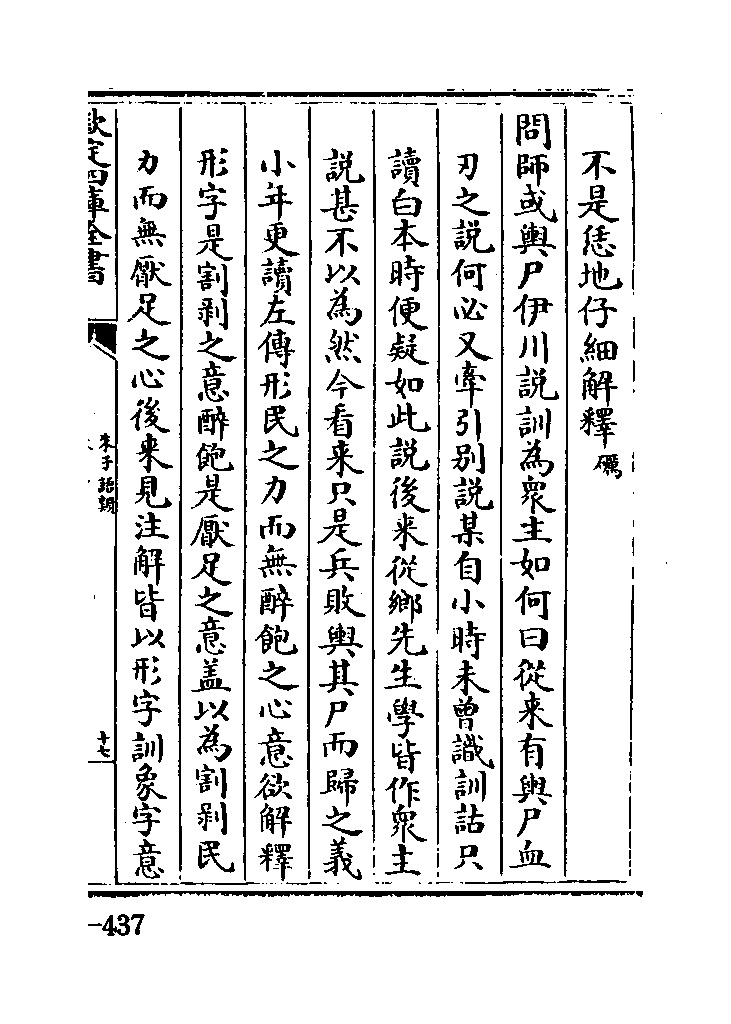 不是恁地仔細解釋礪
問師或輿尸伊川説訓為衆主如何曰從来有輿尸血
刃之説何必又牽引别説某自小時未曽識訓詁只
讀白本時便疑如此説後来從鄉先生學皆作衆主
説甚不以為然今看来只是兵敗輿其尸而歸之義
小年更讀左傳形民之力而無醉飽之心意欲解釋
形字是割剥之意醉飽是厭足之意盖以為割剥民
力而無厭足之心後来見注解皆以形字訓象字意
欽定四庫全書
朱子語類
十七
-437